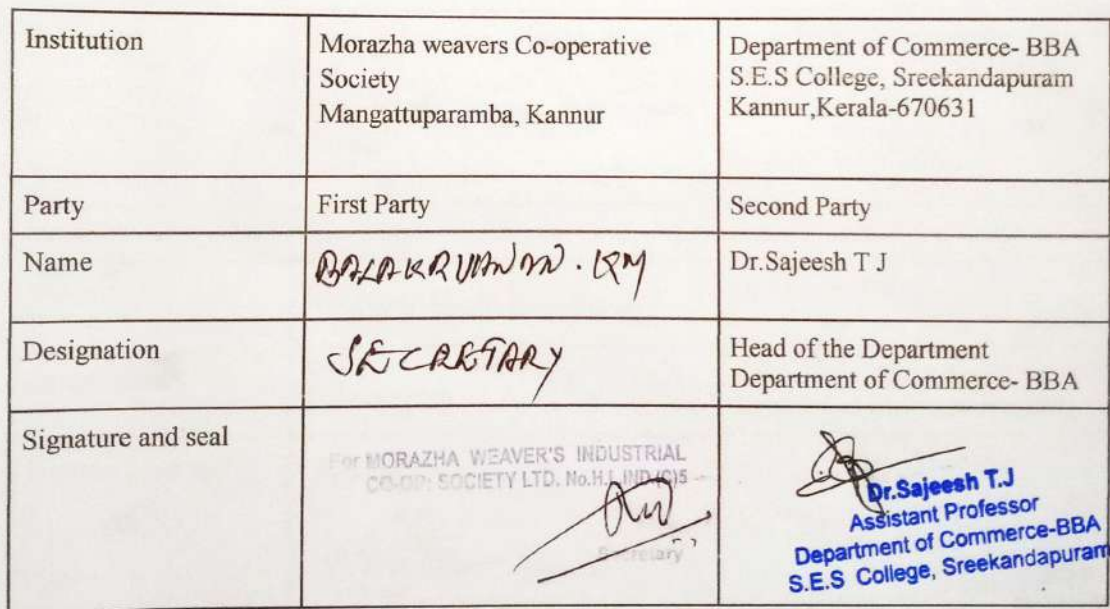 Institution
Morazha weavers Co-operative
Society
Mangattuparamba, Kannur
Department of Commerce- BBA
S.E.S College, Sreekandapuram
Kannur,Kerala-670631
Party
First Party
Second Party
Name
BALAKRISHNAN . KM
Dr.Sajeesh T J
Designation
SECRETARY
Head of the Department
Department of Commerce- BBA
Signature and seal
For MORAZHA WEAVER'S INDUSTRIAL
CO-OP: SOCIETY LTD. No.H.L.IND.(C)5
Secretary
Dr.Sajeesh T.J
Assistant Professor
Department of Commerce-BBA
S.E.S College, Sreekandapuram